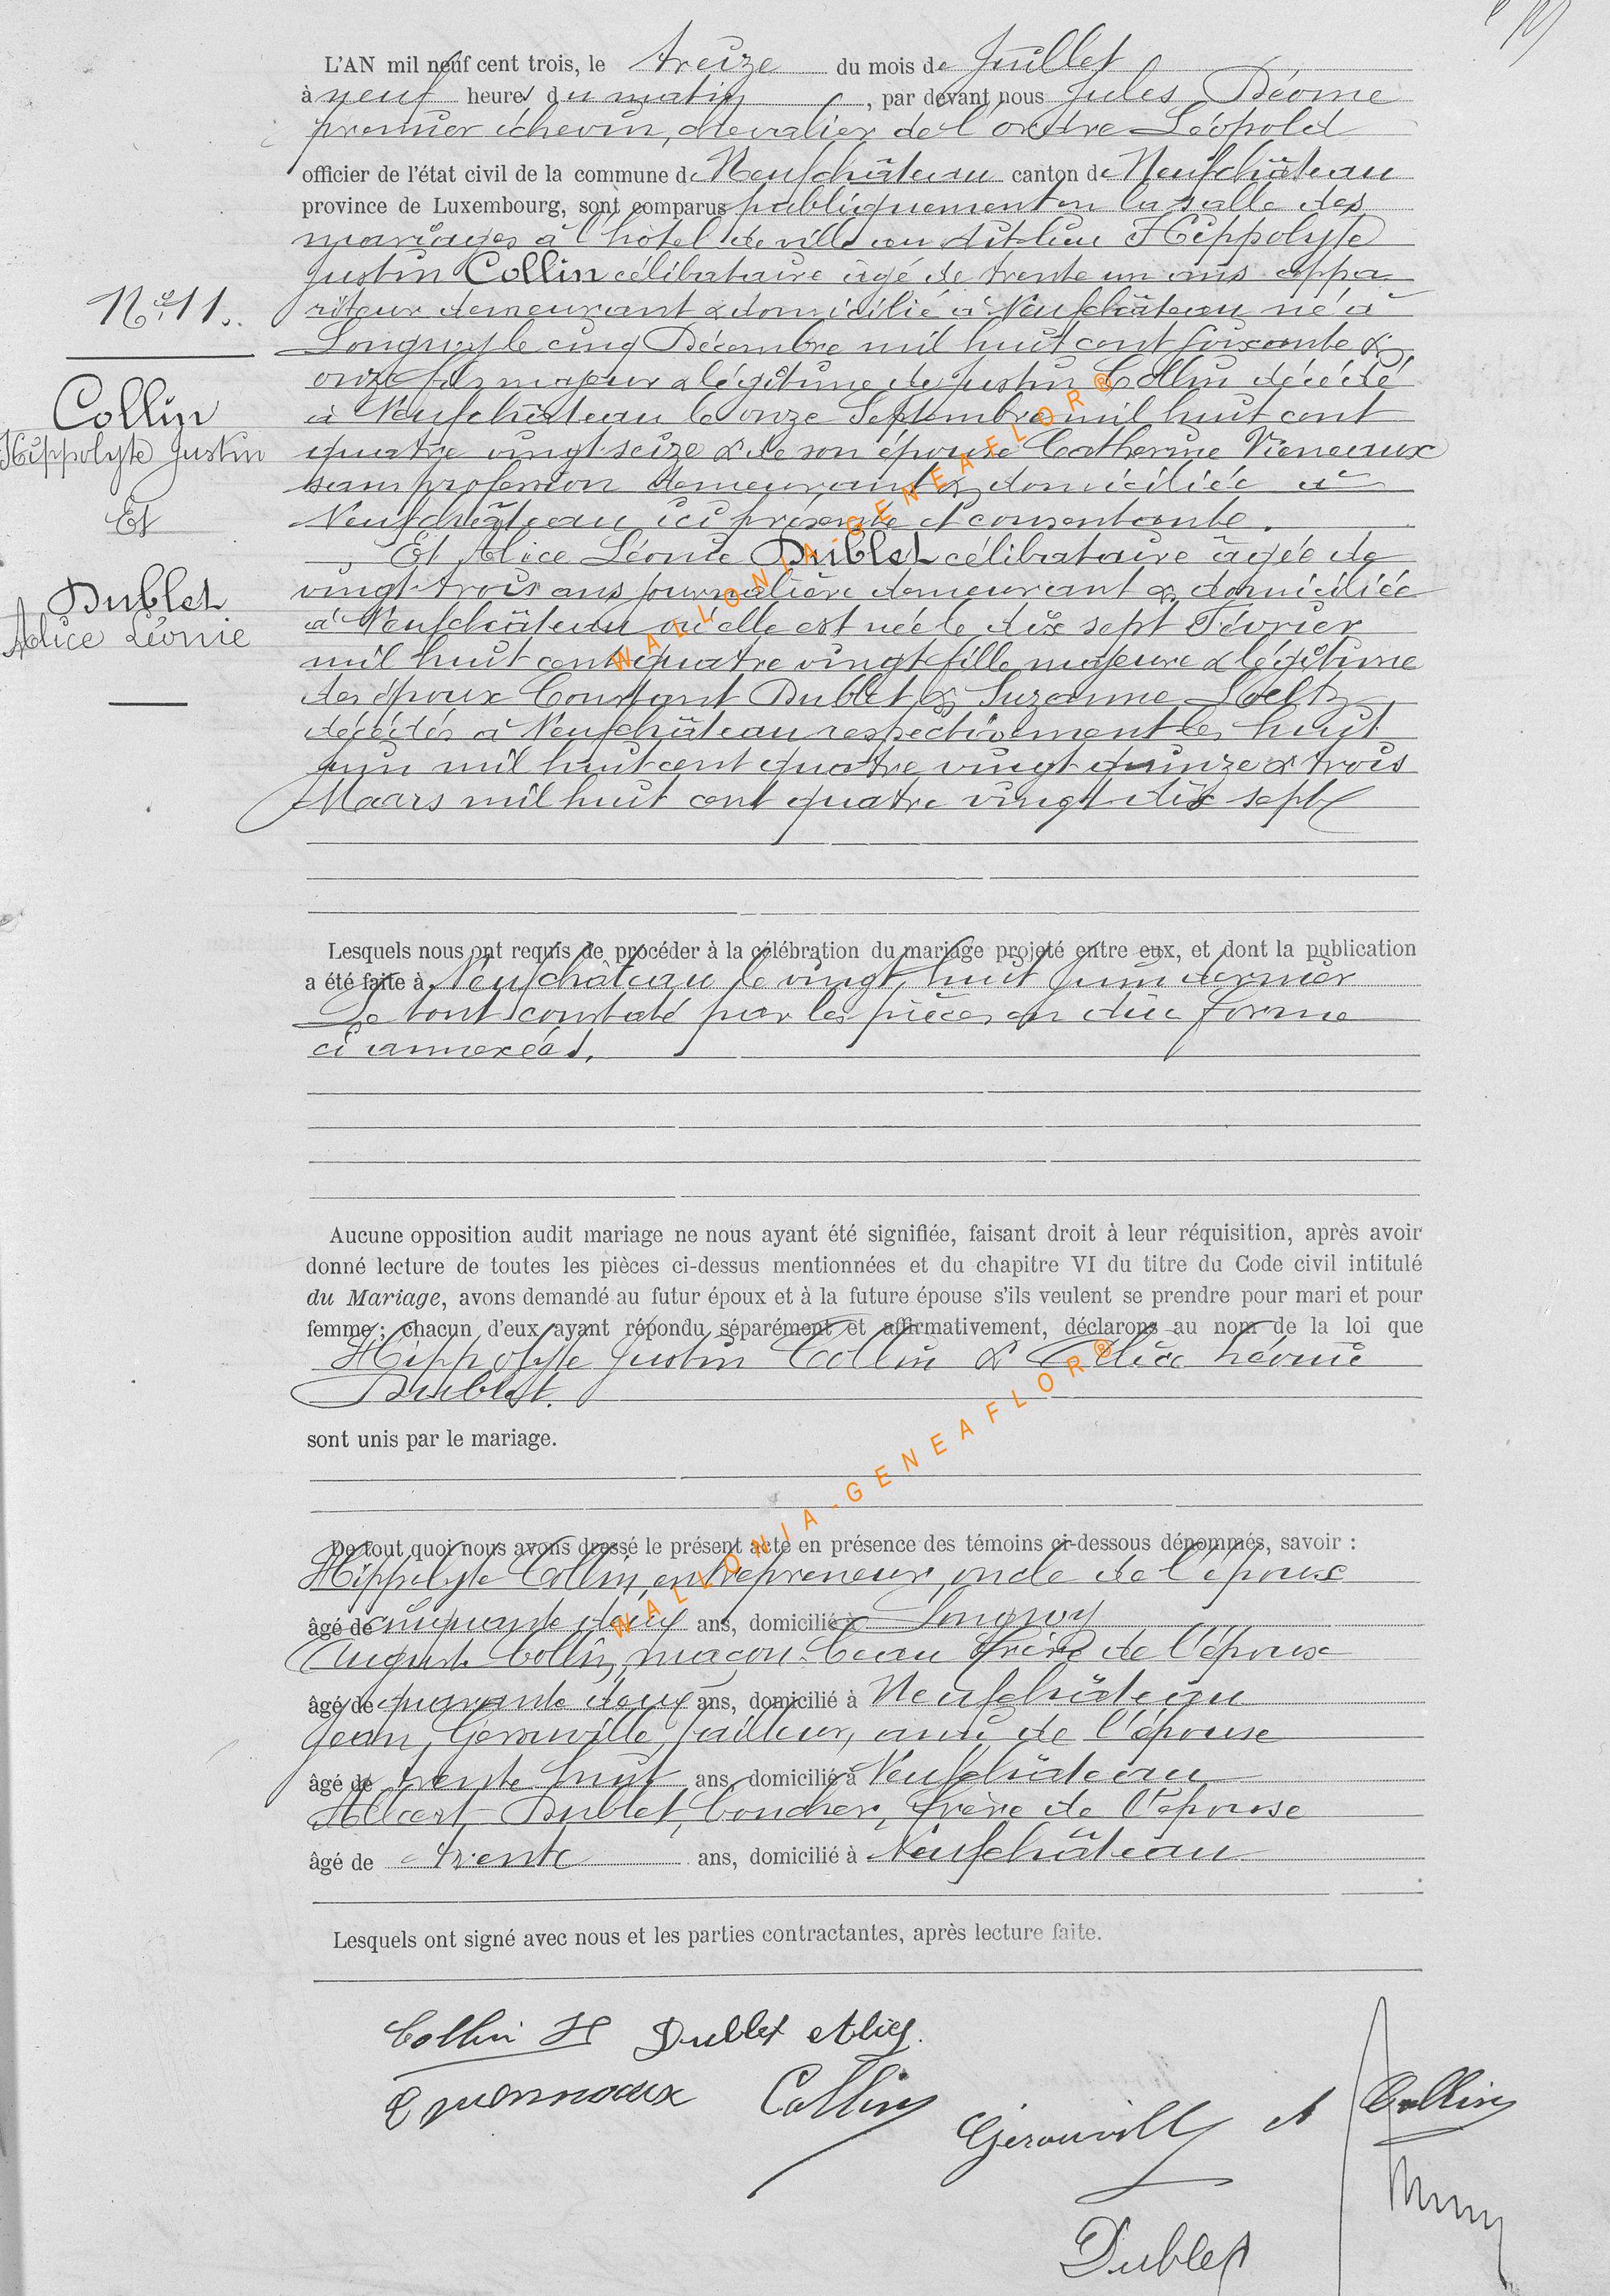 L'AN mil neuf cent trois, le treize du mois de Juillet
à neuf heures du matin, par devant nous Jules Déome
premier échevin, chevalier de l'ordre Léopold
officier de l'état civil de la commune de Neufchâteau canton de Neufchâteau
province de Luxembourg, sont comparus publiquement en la salle des
mariages à l'hôtel de ville au dit lieu Hippolyte
Justin Collin célibataire âgé de trente un ans appa
riteur demeurant & domicilié à Neufchâteau né à
Longwy le cinq Décembre mil huit cent soixante &
onze fils majeur & légitime de Justin Collin décédé
à Neufchâteau le onze Septembre mil huit cent
quatre vingt seize & de son épouse Catherine Vieneaux
sans profession demeurant & domiciliée à
Neufchâteau ici présente et consentante.
Et Alice Léonie Dublet célibataire âgée de
vingt-trois ans journalière demeurant & domiciliée
à Neufchâteau où elle est née le dix sept Février
mil huit cent quatre vingt fille majeure & légitime
des époux Constant Dublet & Suzanne Loeltz
décédés à Neufchâteau respectivement les huit
Juin mil huit cent quatre vingt quinze & trois
Maars mil huit cent quatre vingt dix sept
N° 11.
Collin
Hippolyte Justin
Et
Dublet
Alice Léonie
Lesquels nous ont requis de procéder à la célébration du mariage projeté entre eux, et dont la publication
a été faite à Neufchâteau le vingt huit Juin dernier
Le tout constaté par les pièces en due forme
ci annexées.
Aucune opposition audit mariage ne nous ayant été signifiée, faisant droit à leur réquisition, après avoir
donné lecture de toutes les pièces ci-dessus mentionnées et du chapitre VI du titre du Code civil intitulé
du Mariage, avons demandé au futur époux et à la future épouse s'ils veulent se prendre pour mari et pour
femme; chacun d'eux ayant répondu séparément et affirmativement, déclarons au nom de la loi que
Hippolyte Justin Collin & Alice Léonie
Dublet.
sont unis par le mariage.
De tout quoi nous avons dressé le présent acte en présence des témoins ci-dessous dénommés, savoir :
Hippolyte Collin, entrepreneur, oncle de l'époux
âgé de cinquante deux ans, domicilié à Longwy
Auguste Collin, maçon beau frère de l'épouse
âgé de quarante deux ans, domicilié à Neufchâteau
Jean Gérouville, tailleur, ami de l'épouse
âgé de trente huit ans, domicilié à Neufchâteau
Albert Dublet, boucher, frère de l'épouse
âgé de trente ans, domicilié à Neufchâteau
Lesquels ont signé avec nous et les parties contractantes, après lecture faite.
Collin H Dublet Alice.
Collin
Gérouville A Collin
Dublet
WALLONIA-GENEAFLOR®
WALLONIA-GENEAFLOR®